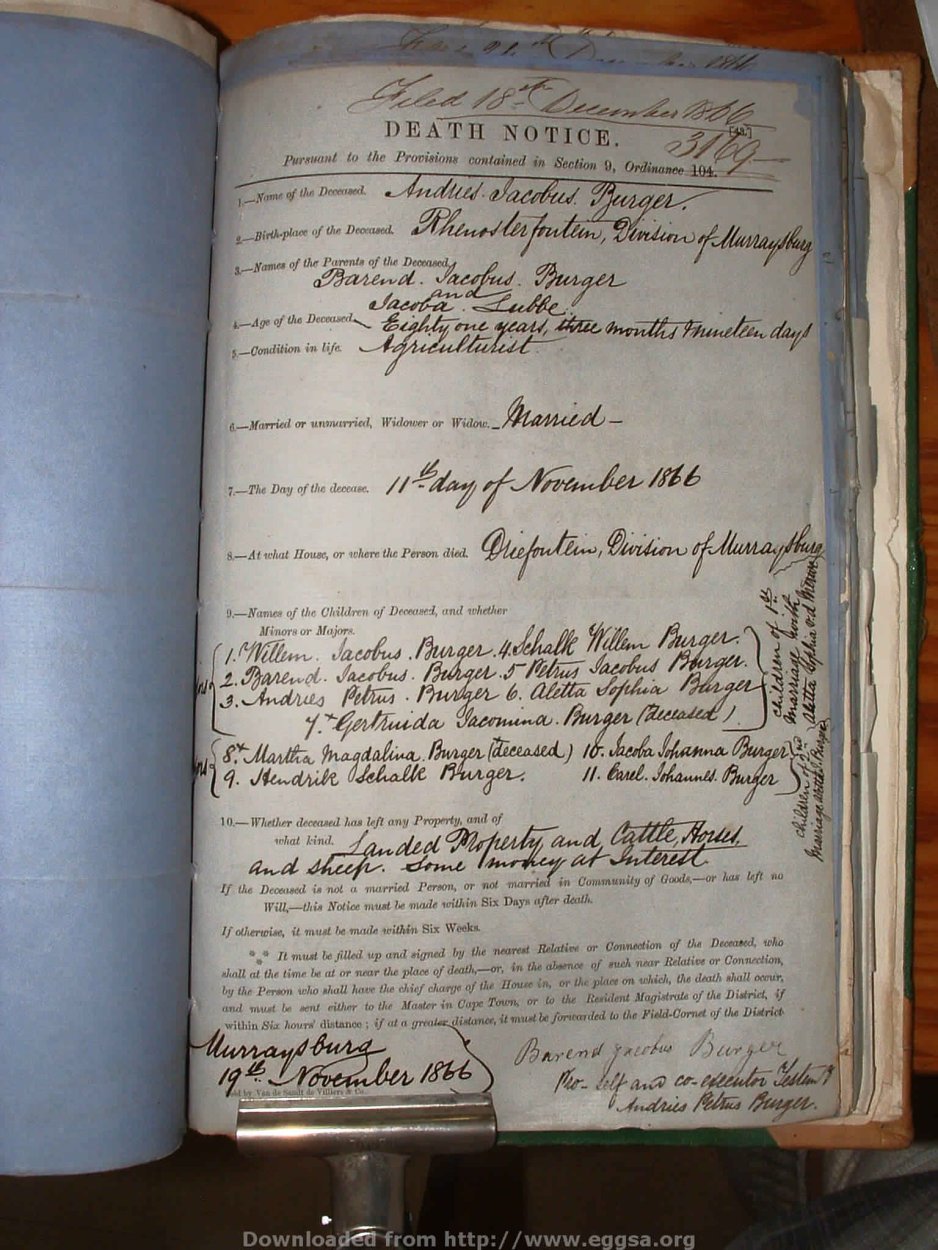 Filed 18th December 1866
[43.]
DEATH NOTICE.
3169
Pursuant to the Provisions contained in Section 9, Ordinance 104.
1.—Name of the Deceased. Andries Jacobus Burger.
2.—Birth-place of the Deceased. Rhenosterfontein, Division of Murraysburg
3.—Names of the Parents of the Deceased.
Barend Jacobus Burger
and
Jacoba Lubbe
4.—Age of the Deceased. Eighty one years, three months & nineteen days
5.—Condition in life. Agriculturist
6.—Married or unmarried, Widower or Widow. Married —
7.—The Day of the decease. 11th day of November 1866
8.—At what House, or where the Person died. Driefontein, Division of Murraysburg
9.—Names of the Children of Deceased, and whether
Minors or Majors.
1. Willem Jacobus Burger. 4. Schalk Willem Burger.
2. Barend Jacobus Burger. 5 Petrus Jacobus Burger.
3. Andries Petrus Burger 6. Aletta Sophia Burger
7. Gertruida Jacomina Burger (deceased)
children of 1st
marriage with
Aletta Sophia v.d. Merwe
8. Martha Magdalina Burger (deceased) 10. Jacoba Johanna Burger
9. Hendrik Schalk Burger. 11. Carel Johannes Burger
children of
marriage
10.—Whether deceased has left any Property, and of
what kind. Landed Property and Cattle, Horses,
and sheep. Some money at Interest.
If the Deceased is not a married Person, or not married in Community of Goods,—or has left no
Will,—this Notice must be made within Six Days after death.
If otherwise, it must be made within Six Weeks.
*** It must be filled up and signed by the nearest Relative or Connection of the Deceased, who
shall at the time be at or near the place of death,—or, in the absence of such near Relative or Connection,
by the Person who shall have the chief charge of the House in, or the place on which, the death shall occur,
and must be sent either to the Master in Cape Town, or to the Resident Magistrate of the District, if
within Six hours' distance; if at a greater distance, it must be forwarded to the Field-Cornet of the District
Murraysburg
19th November 1866
Barend Jacobus Burger
Pro- self and co-executor Testamt
Andries Petrus Burger.
Sold by Van de Sandt de Villiers & Co.
Downloaded from http://www.eggsa.org